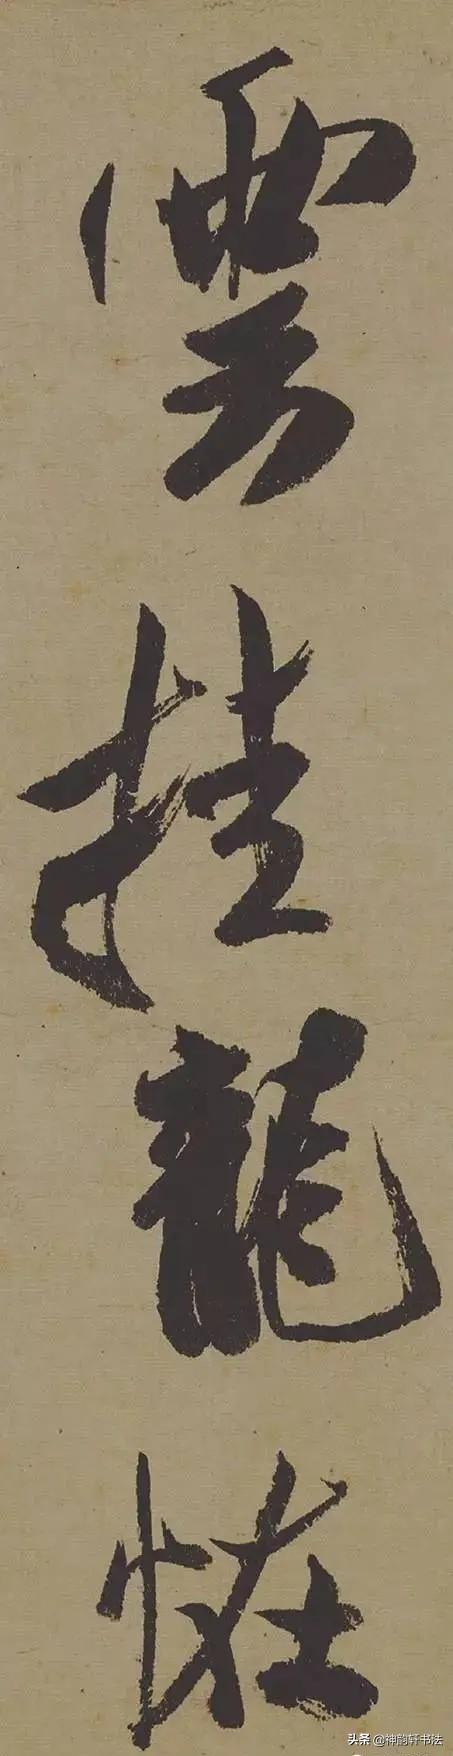 雲挂龍恠
头条 @神韵轩书法